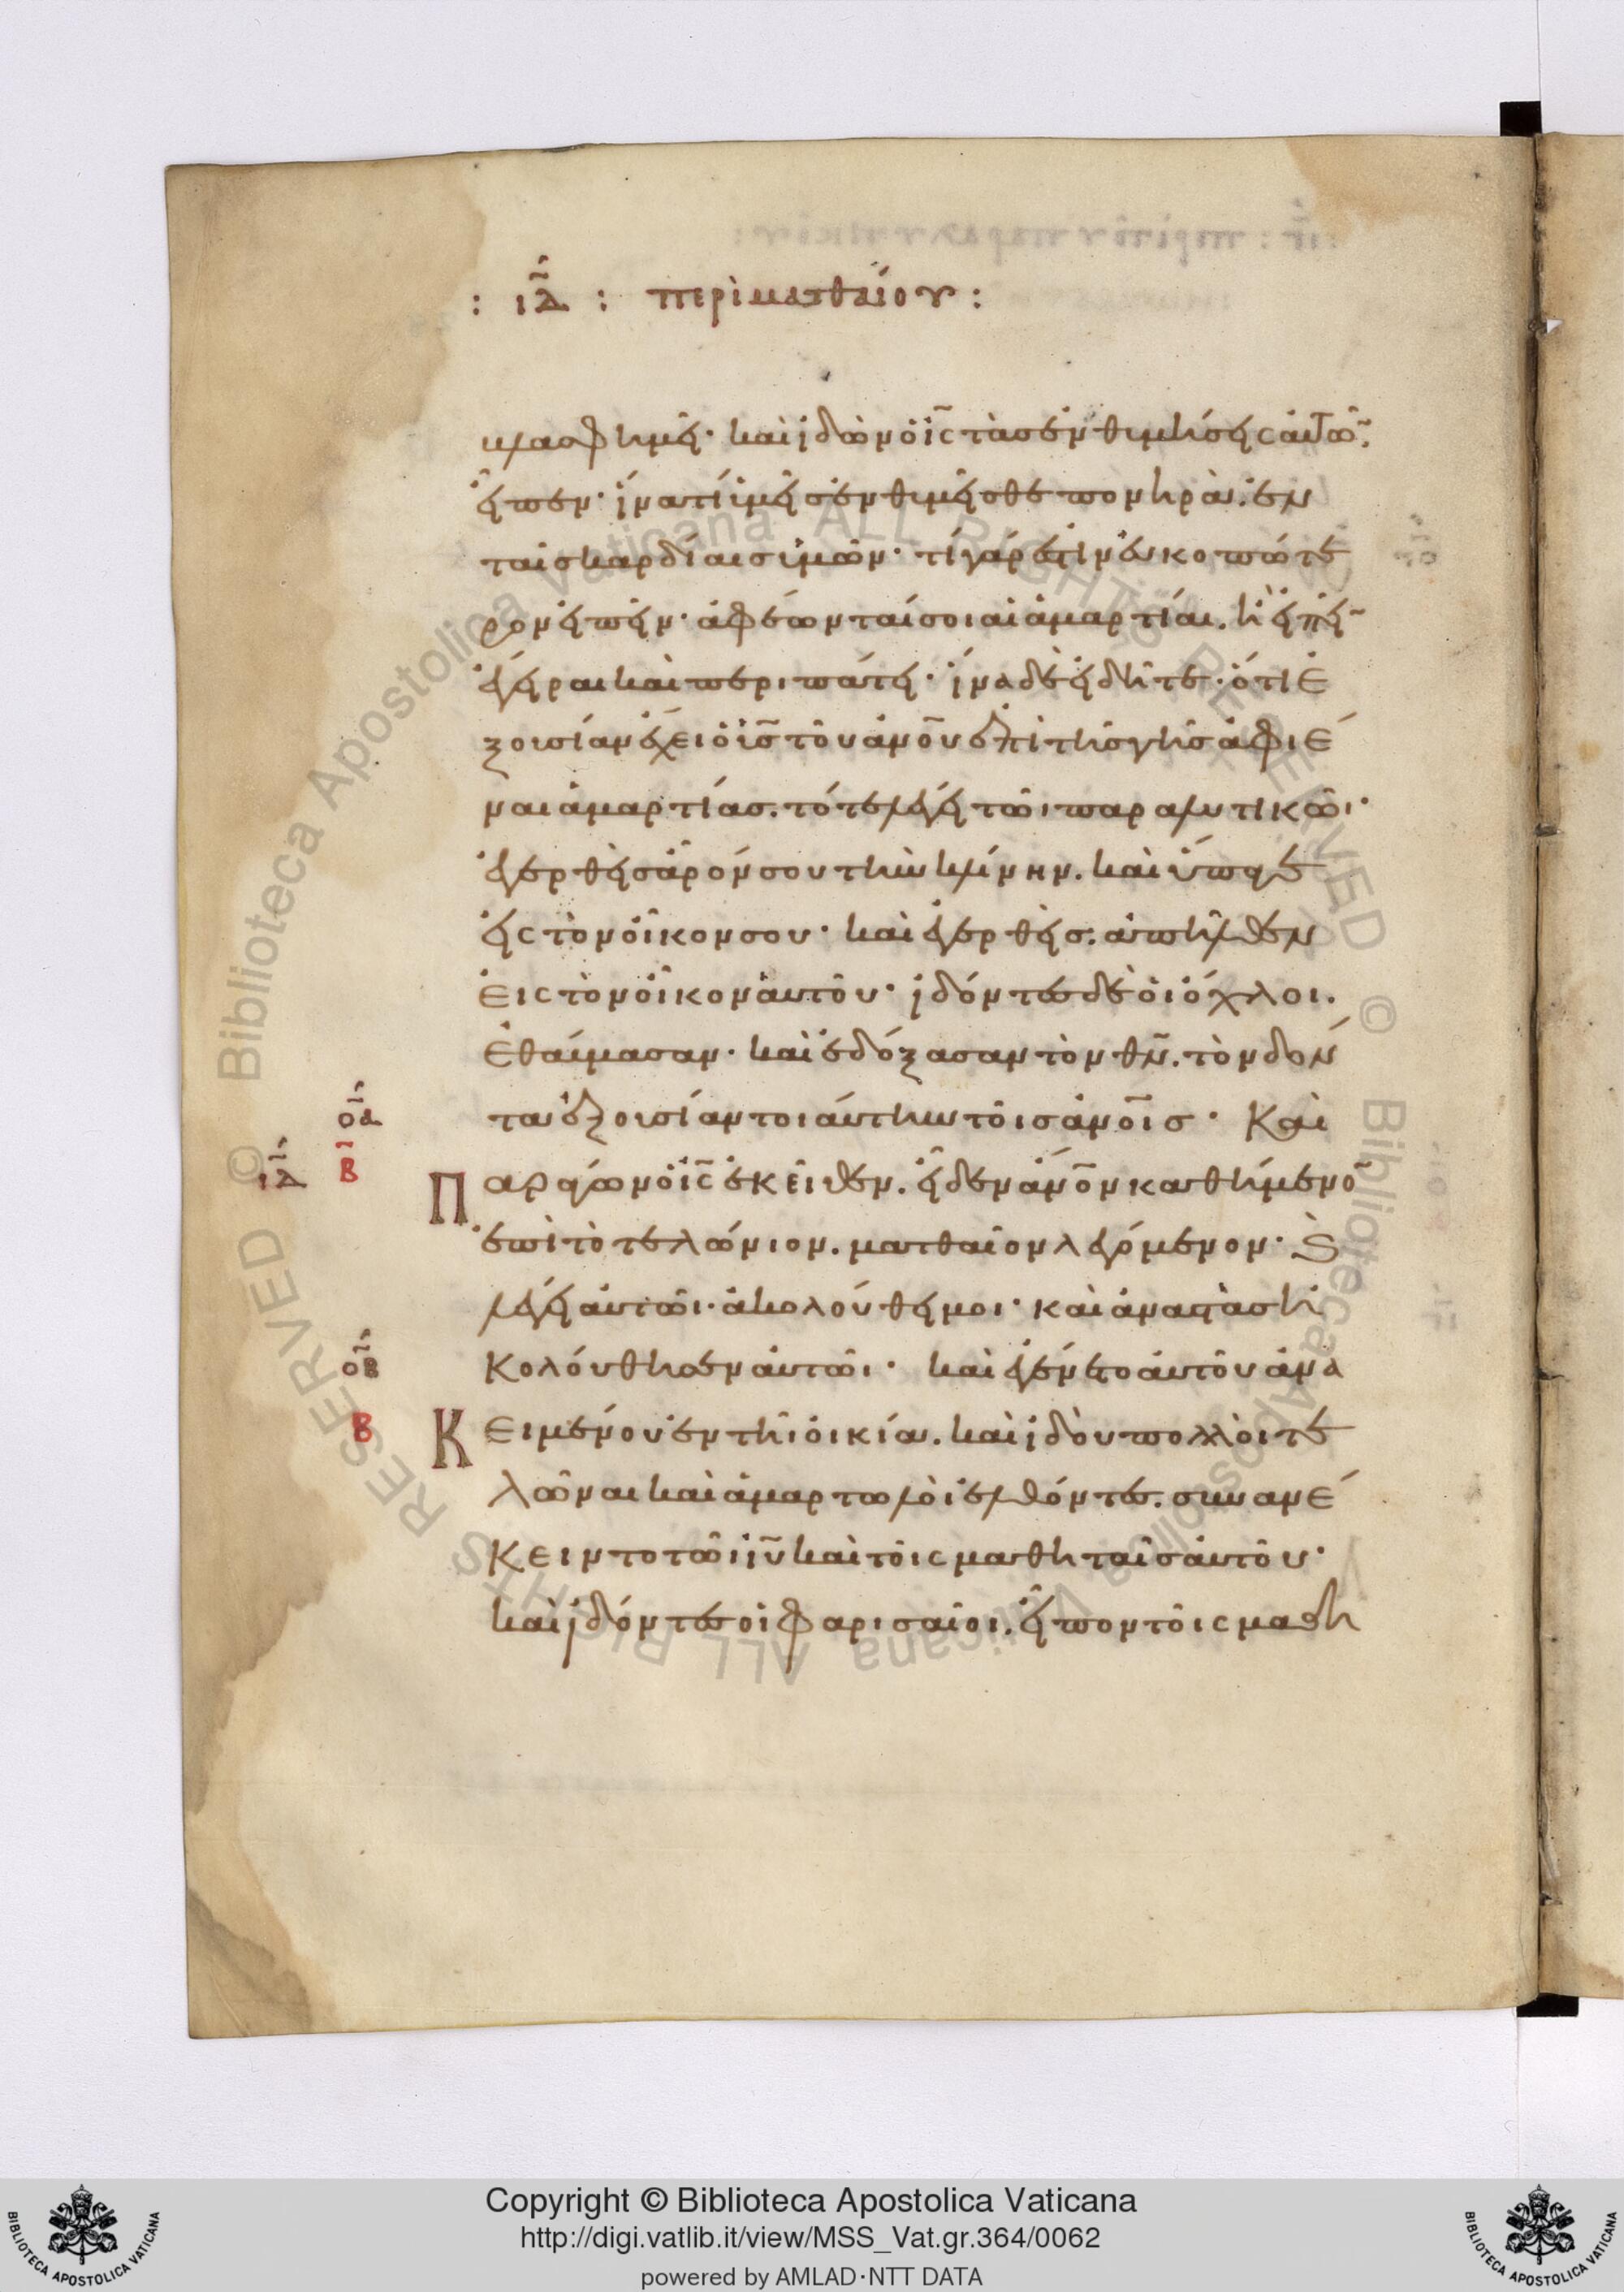 : ιδ : περὶ ματθαίου :
βλασφημεῖ· καὶ ἰδὼν ὁ ισ τὰς ἐνθυμήσεις αὐτῶν.
εἶπεν· ἱνατί ὑμεῖς ἐνθυμεῖσθε πονηρὰ. ἐν
ταῖς καρδίαις ὑμῶν· τί γάρ ἐστιν εὐκοπώτε
ρον εἰπεῖν· ἀφέωνταί σοι αἱ ἁμαρτίαι. ἢ εἰπεῖν
ἔγειραι καὶ περιπάτει· ἵνα δὲ εἰδῆτε. ὅτι ἐ
ξουσίαν ἔχει ὁ υσ τοῦ ανου ἐπὶ τῆς γῆς ἀφιέ
ναι ἁμαρτίας. τότε λέγει τῶι παραλυτικῶι·
ἐγερθεὶς ἆρόν σου τὴν κλίνην. καὶ ὕπαγε
εἰς τὸν οἶκον σου· καὶ ἐγερθεὶς. ἀπῆλθεν
εἰς τὸν οἶκον αὐτοῦ· ἰδόντες δὲ οἱ ὄχλοι.
ἐθαύμασαν· καὶ ἐδόξασαν τὸν θν. τὸν δόν
οα τα ἐξουσίαν τοιαύτην τοῖς ανοις· Καὶ
ιδ β Παράγων ὁ ισ ἐκεῖθεν. εἶδεν ανον καθήμενον
ἐπὶ τὸ τελώνιον. ματθαῖον λεγόμενον· καὶ
λέγει αὐτῶι· ἀκολούθει μοι· καὶ ἀναστὰς ἠ
οβ κολούθησεν αὐτῶι· καὶ ἐγένετο αὐτοῦ ἀνα
β Κειμένου ἐν τῆι οἰκία. καὶ ἰδοὺ πολλοὶ τε
λῶναι καὶ ἁμαρτωλοὶ ἐλθόντες. συνανέ
κειντο τῶι ιυ καὶ τοῖς μαθηταῖς αὐτοῦ·
καὶ ἰδόντες οἱ φαρισαῖοι. εἶπον τοῖς μαθη
Copyright © Biblioteca Apostolica Vaticana
http://digi.vatlib.it/view/MSS_Vat.gr.364/0062
powered by AMLAD·NTT DATA
BIBLIOTECA APOSTOLICA VATICANA
BIBLIOTECA APOSTOLICA VATICANA
© Biblioteca Apostolica Vaticana ALL RIGHTS RESERVED
© Biblioteca Apostolica Vaticana ALL RIGHTS RESERVED